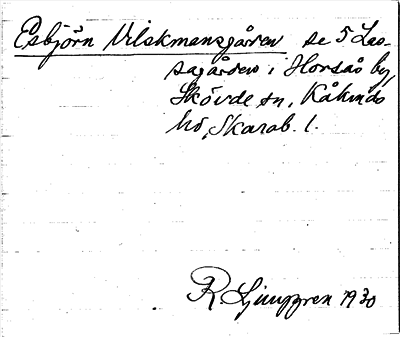 Esbjörn Vilskmansgården se 5 Las-
sagården i Horsås by,
Skövde sn, Kåkinds
hd, Skarab. l.
R Ljunggren 1930